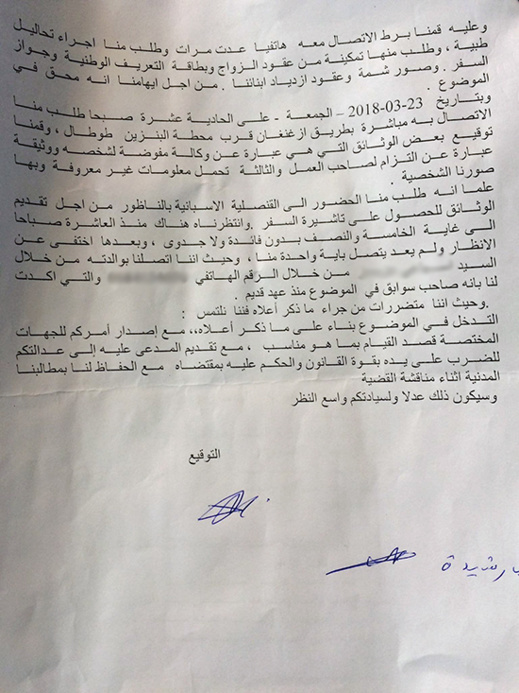 وعليه قمنا بربط الاتصال معه هاتفيا عدت مرات وطلب منا اجراء تحاليل
طبية ، وطلب منها تمكينة من عقود الزواج وبطاقة التعريف الوطنية وجواز
السفر . وصور شمة وعقود ازدياد ابنائنا . من اجل ايهامنا انه محق في
الموضوع .
وبتاريخ 23-03-2018 – الجمعة - على الحادية عشرة صبحا طلب منا
الاتصال به مباشرة بطريق ازغنغان قرب محطة البنزين طوطال ، وقمنا
توقيع بعض الوثائق التي هي عبارة عن وكالة مفوضة لشخصه ووثيقة
عبارة عن التزام لصاحب العمل والثالثة تحمل معلومات غير معروفة وبها
صورنا الشخصية .
علما انه طلب منا الحضور الى القنصلية الاسبانية بالناظور من اجل تقديم
الوثائق للحصول على تاشيرة السفر . وانتظرناه هناك منذ العاشرة صباحا
الى غاية الخامسة والنصف بدون فائدة ولا جدوى ، وبعدها اختفى عن
الانظار ولم يعد يتصل باية واحدة منا ، وحيث اننا اتصلنا بوالدته من خلال
السيد من خلال الرقم الهاتفي والتي اكدت
لنا بانه صاحب سوابق في الموضوع منذ عهد قديم .
.وحيث اننا متضررات من جراء ما ذكر أعلاه فننا نلتمس :
التدخل في الموضوع بناء على ما ذكر أعلاه،،، مع إصدار أمركم للجهات
المختصة قصد القيام بما هو مناسب ، مع تقديم المدعى عليه إلى عدالتكم
للضرب على يده بقوة القانون والحكم عليه بمقتضاه مع الحفاظ لنا بمطالبنا
المدنية اثناء مناقشة القضية
وسيكون ذلك عدلا ولسيادتكم واسع النظر
التوقيع